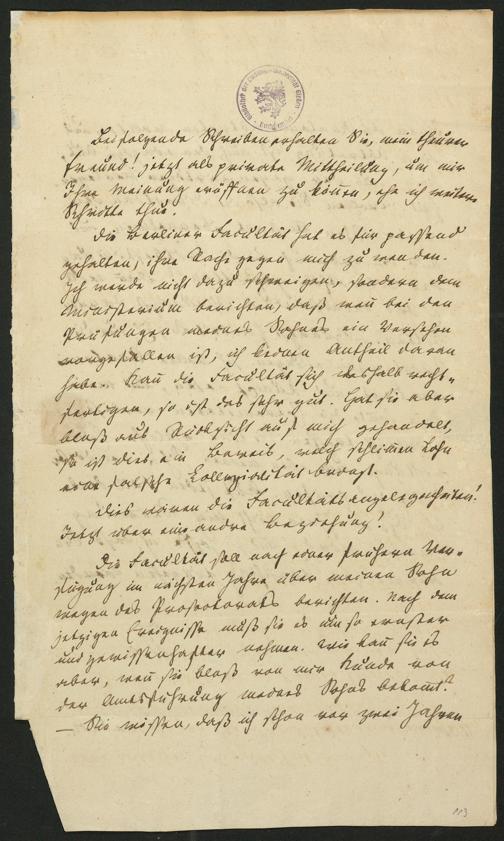 Beifolgende Schreiben erhalten Sie, mein theurer
Freund! jetzt als private Mittheilung, um mir
Ihre Meinung eröffnen zu können, ehe ich weitere
Schritte thue.
Die Berliner Facultät hat es für passend
gehalten, ihre Sache gegen mich zu wenden.
Ich werde nicht dazu schweigen, sondern dem
Ministerium berichten, daß wenn bei den
Prüfungen meines Sohnes ein Versehen
vorgefallen ist, ich keinen Antheil daran
habe. Kann die Facultät sich deshalb recht-
fertigen, so ist das sehr gut. Hat sie aber
bloß aus Rücksicht auf mich gehandelt,
so ist dies ein Beweis, welch schlimmen Lohn
eine falsche Collegialität bringt.
Dies wären die Facultätsangelegenheiten!
Jetzt über eine andre Beziehung!
Die Facultät soll nach einer frühern Ver-
fügung im nächsten Jahre über meinen Sohn
wegen des Prosectorats berichten. Nach dem
jetzigen Ereignisse muß sie es um so ernster
und gewissenhafter nehmen. Wie kann sie es
aber, wenn sie bloß von mir Kunde von
der Amtsführung meines Sohns bekommt?
— Sie wissen, daß ich schon vor zwei Jahren
113